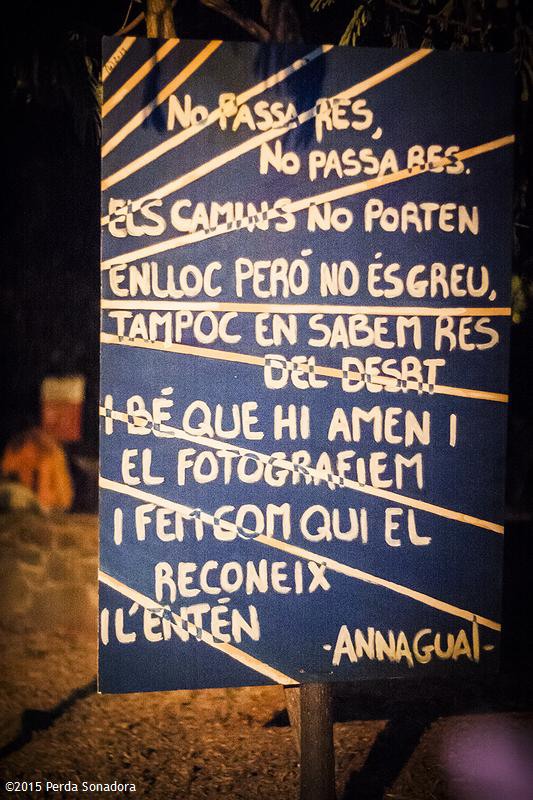 NO PASSA RES,
NO PASSA RES.
ELS CAMINS NO PORTEN
ENLLOC PERÓ NO ÉS GREU,
TAMPOC EN SABEM RES
DEL DESRT
I BÉ QUE HI AMEN I
EL FOTOGRAFIEM
I FEM COM QUI EL
RECONEIX
I L'ENTÉN
-ANNA GUAL-
©2015 Perda Sonadora